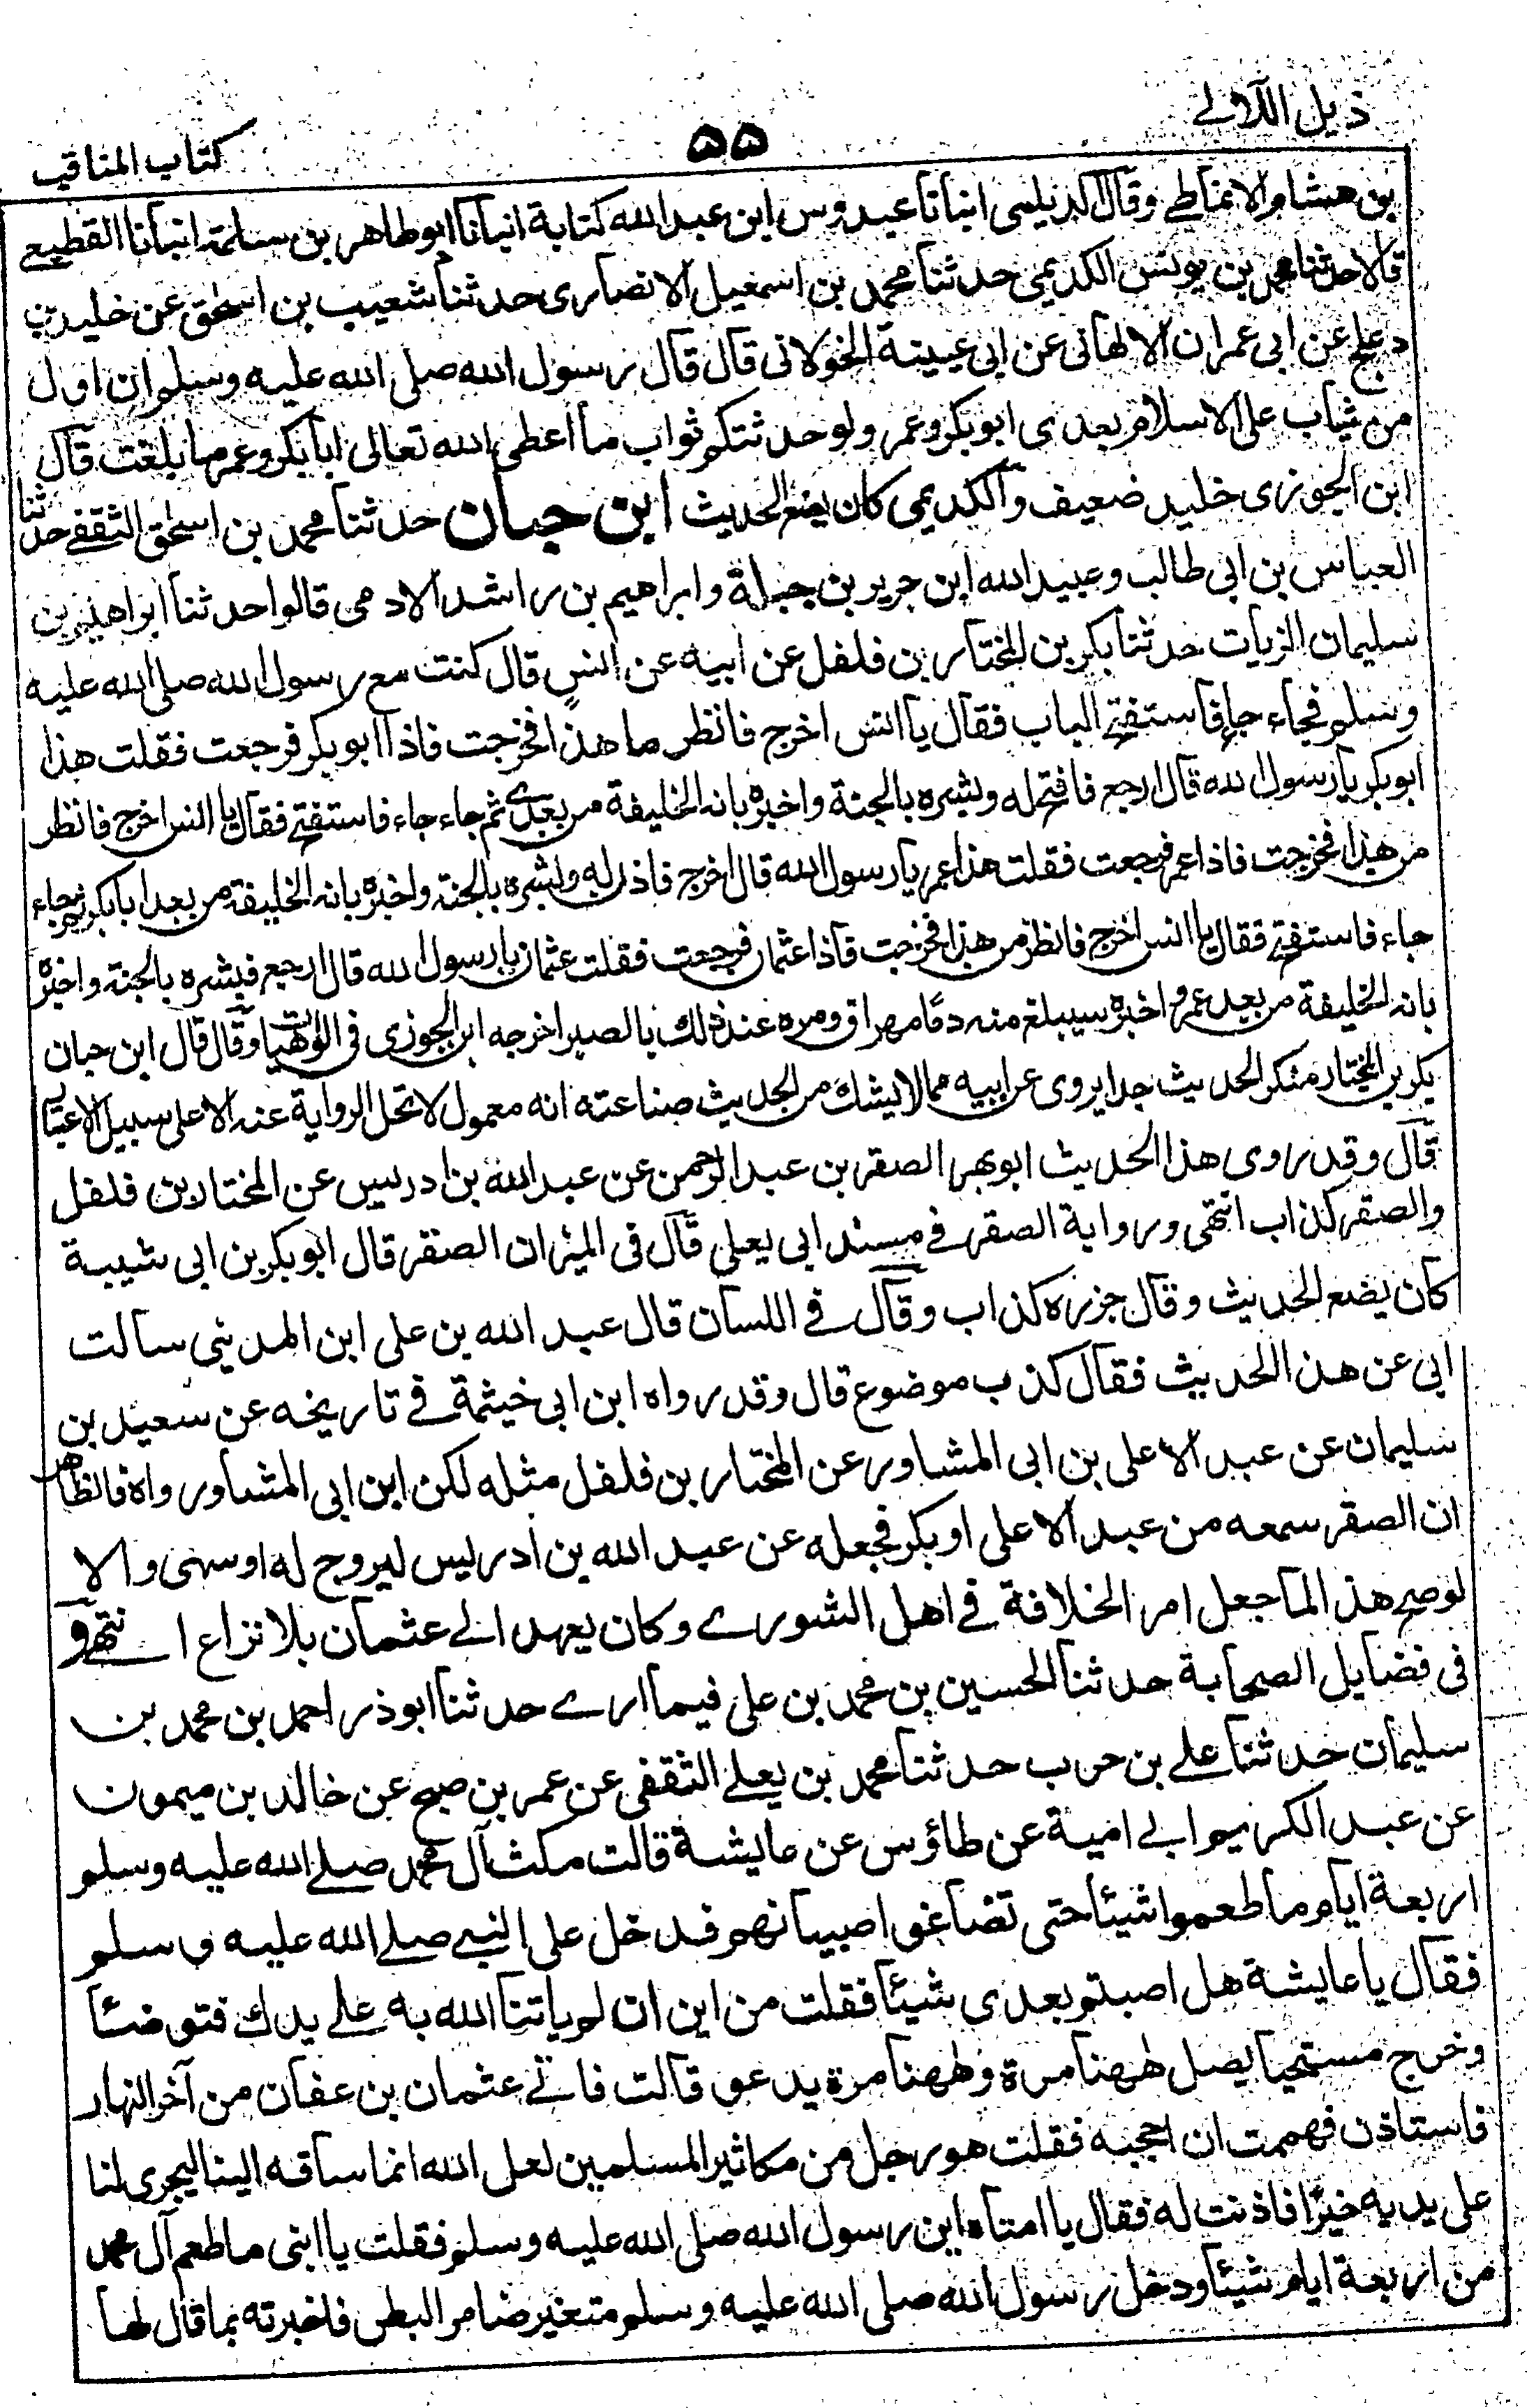 ذيل اللآلے
٥٥
كتاب المناقب
بن هشام الانماطے وقال الديلمى انبأنا عبدوس ابن عبد الله كتابة انبأنا ابو طاهر بن سلمة انبأنا القطيعے
قالا حدثنا محمد بن يونس الكديمى حدثنا محمد بن اسمعيل الانصارى حدثنا شعيب بن اسحٰق عن خليد بن
دعلج عن ابى عمران الالهانى عن ابى عيينة الخولانى قال قال رسول الله صلى الله عليه وسلم ان اول
من يثاب على الاسلام بعدى ابوبكر وعمر ولو حدثتكم ثواب ما اعطى الله تعالى ابابكر وعمر ما بلغت قال
ابن الجوزى خليد ضعيف والكديمى كان يضع الحديث ابن حبان حدثنا محمد بن اسحٰق الثقفے حدثنا
العباس بن ابى طالب وعبيد الله ابن جرير بن جبلة وابراهيم بن راشد الادمى قالوا حدثنا ابراهيم بن
سليمان الزيات حدثنا بكر بن المختار بن فلفل عن ابيه عن انس قال كنت مع رسول الله صلى الله عليه
وسلم فجاء جاء فاستفتح الباب فقال يا انس اخرج فانظر ما هذا فخرجت فاذا ابوبكر فرجعت فقلت هذا
ابوبكر يا رسول الله قال ارجع فافتح له وبشره بالجنة واخبره بانه الخليفة من بعدے ثم جاء جاء فاستفتح فقال يا انس اخرج فانظر
من هذا فخرجت فاذا عمر فرجعت فقلت هذا عمر يا رسول الله قال اخرج فاذن له وبشره بالجنة واخبره بانه الخليفة من بعد ابابكر ثم جاء
جاء فاستفتح فقال يا انس اخرج فانظر من هذا فخرجت فاذا عثمان فرجعت فقلت عثمان يا رسول الله قال ارجع فبشره بالجنة واخبره
بانه الخليفة من بعد عمر واخبره سيبلغ منه دما مهراق ومره عند ذلك بالصبر اخرجه ابن الجوزى فى الواهيات وقال قال ابن حبان
بكر بن المختار منكر الحديث جدا يروى عن ابيه مما لا يشك من الحديث صناعته انه معمول لا تحل الرواية عنه الا على سبيل الاعتبار
قال وقد روى هذا الحديث ابو بهز الصقر بن عبد الرحمن عن عبد الله بن ادريس عن المختار بن فلفل
والصقر كذاب انتهى ورواية الصقر فے مسند ابى يعلى قال فى الميزان الصقر قال ابوبكر بن ابى شيبة
كان يضع الحديث وقال جزره كذاب وقال فے اللسان قال عبد الله بن على ابن المدينى سالت
ابى عن هذا الحديث فقال كذب موضوع قال وقد رواه ابن ابى خيثمة فے تاريخه عن سعيد بن
سليمان عن عبد الاعلى بن ابى المشاور عن المختار بن فلفل مثله لكن ابن ابى المشاور واه فالظاهر
ان الصقر سمعه من عبد الاعلى او بكر فجعله عن عبد الله بن ادريس ليروج له او سهى والا
لو صح هذا لما جعل امر الخلافة فے اهل الشورے وكان يعهد الے عثمان بلا نزاع انتهے و
فى فضايل الصحابة حدثنا الحسين بن محمد بن على فيما ارے حدثنا ابوذر احمد بن محمد بن
سليمان حدثنا علے بن حرب حدثنا محمد بن يعلے الثقفى عن عمر بن صبح عن خالد بن ميمون
عن عبد الكريم ابے امية عن طاؤس عن عايشة قالت مكث آل محمد صلے الله عليه وسلم
اربعة ايام ما طعموا شيئا حتى تضاغوا صبيانهم فدخل على النبے صلے الله عليه وسلم
فقال يا عايشة هل اصبتم بعدى شيئا فقلت من اين ان لم ياتنا الله به علے يدك فتوضأ
وخرج مستحيا يصل ههنا مرة وههنا مرة يدعو قالت فاتے عثمان بن عفان من آخر النهار
فاستاذن فهممت ان احجبه فقلت هو رجل من مكاثير المسلمين لعل الله انما ساقه الينا ليجرى لنا
على يديه خيرا فاذنت له فقال يا امتاه اين رسول الله صلى الله عليه وسلم فقلت يا ابنى ما طعم آل محمد
من اربعة ايام شيئا ودخل رسول الله صلى الله عليه وسلم متغير ضامر البطن فاخبرته بما قال لها